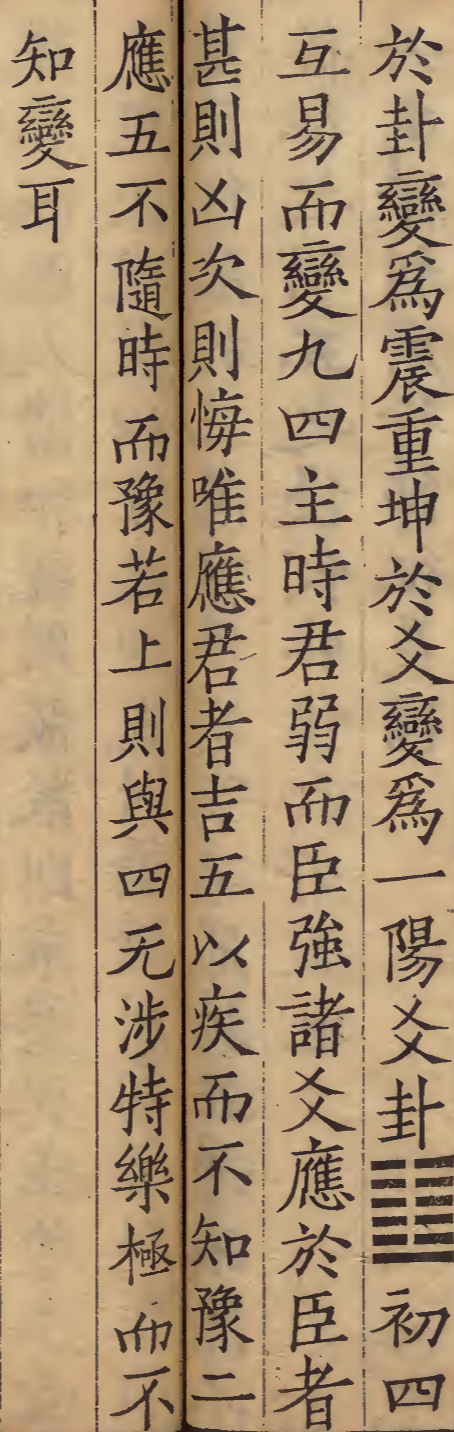 於卦變爲震重坤於爻變爲一陽爻卦䷗初四
互易而變九四主時君弱而臣強諸爻應於臣者
甚則凶次則悔唯應君者吉五以疾而不知豫二
應五不隨時而豫若上則與四无涉特樂極而不
知變耳